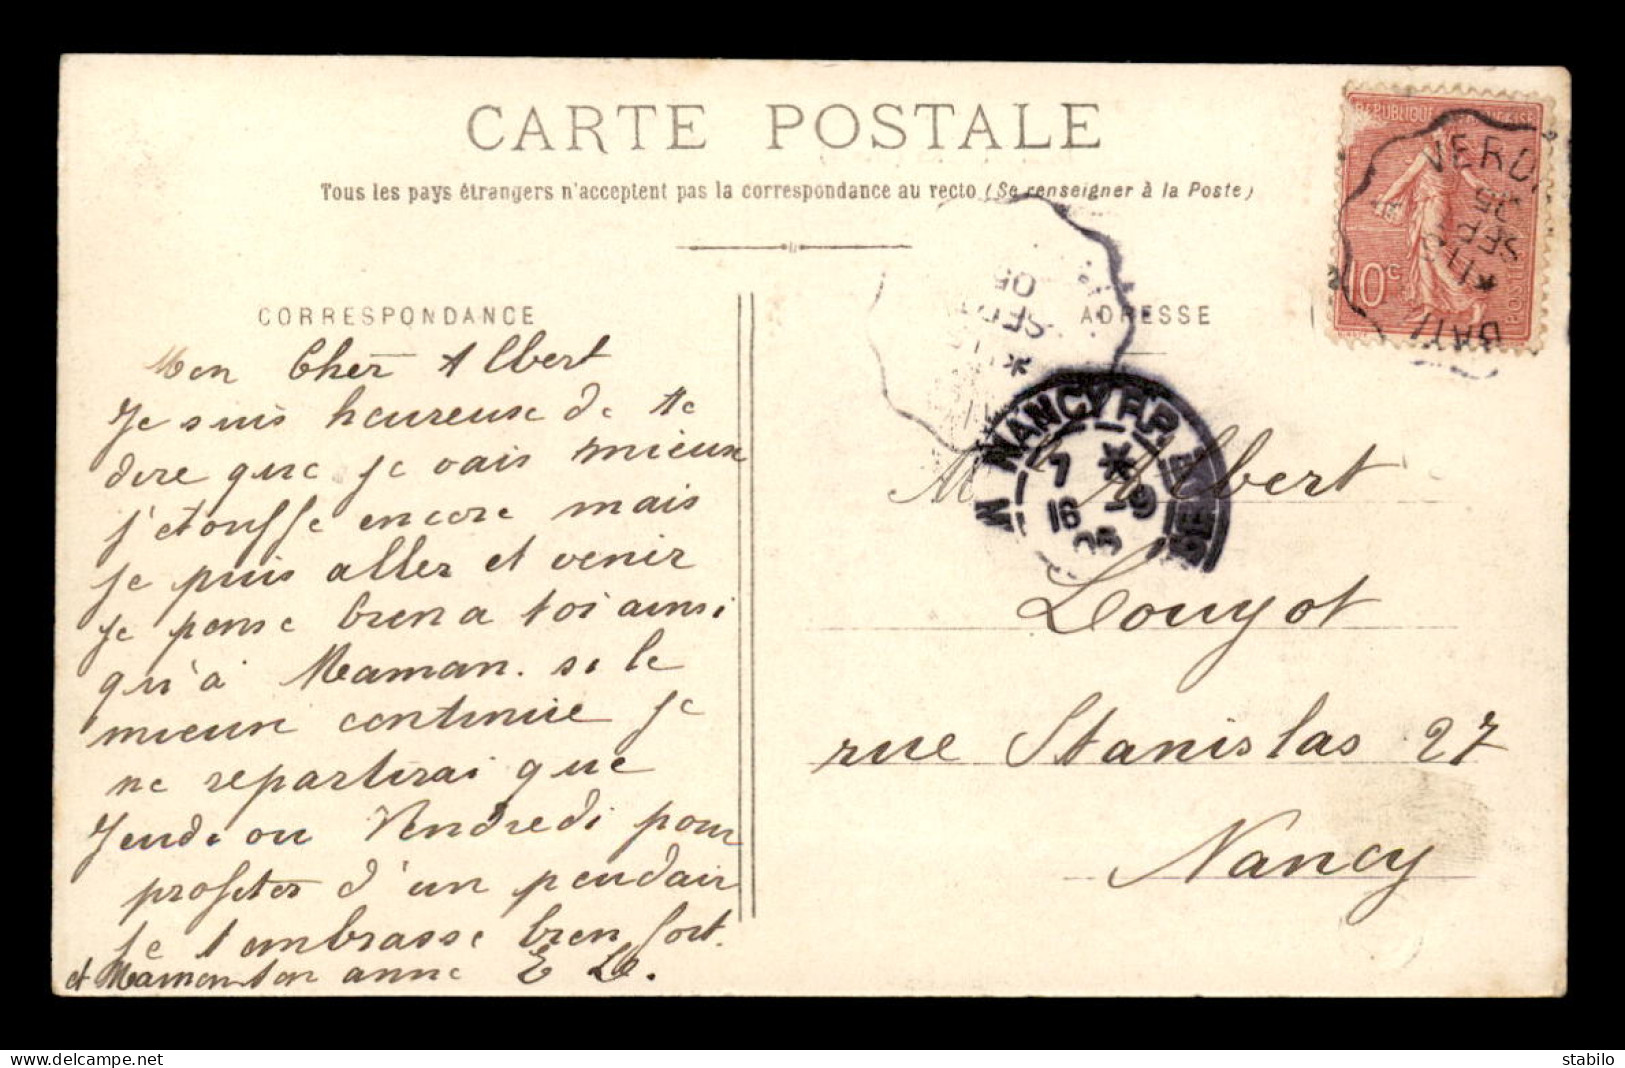 CARTE POSTALE
Tous les pays étrangers n'acceptent pas la correspondance au recto (Se renseigner à la Poste)
CORRESPONDANCE
Mon Cher Albert
Je suis heureuse de te
dire que je vais mieux
j'étouffe encore mais
je puis aller et venir
je pense bien a toi ainsi
qu'à Maman. si le
mieux continue je
ne repartirai que
Jeudi ou Vendredi pour
profiter d'un
je t'embrasse bien fort.
et Maman ton anne E Lo.
ADRESSE
M Albert
Louyot
rue Stanislas 27
Nancy
REPUBLIQUE
10c
POSTES
VERD
05
SEPT
BATI
SEPT
05
NANCY R.P.
7 *
16 -9
05
stabilo